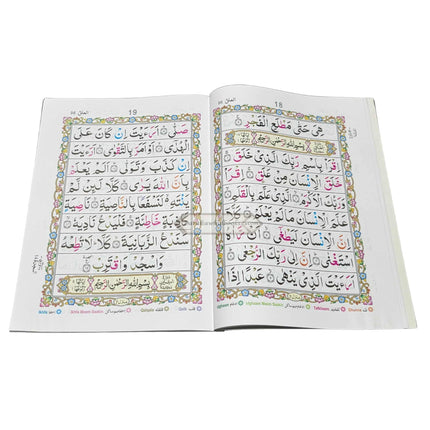 العلق ٩٦
18
هِىَ حَتّٰى مَطْلَعِ الْفَجْرِ
بِسْمِ اللّٰهِ الرَّحْمٰنِ الرَّحِيْمِ
اِقْرَاْ بِاسْمِ رَبِّكَ الَّذِىْ خَلَقَ
خَلَقَ الْاِنْسَانَ مِنْ عَلَقٍ اِقْرَاْ
وَرَبُّكَ الْاَكْرَمُ الَّذِىْ عَلَّمَ بِالْقَلَمِ
عَلَّمَ الْاِنْسَانَ مَا لَمْ يَعْلَمْ كَلَّاۤ
اِنَّ الْاِنْسَانَ لَيَطْغٰٓى اَنْ رَّاٰهُ
اسْتَغْنٰى اِنَّ اِلٰى رَبِّكَ الرُّجْعٰى
اَرَءَيْتَ الَّذِىْ يَنْهٰى عَبْدًا اِذَا
العلق ٩٦
19
صَلّٰى اَرَءَيْتَ اِنْ كَانَ عَلَى
الْهُدٰٓى اَوْ اَمَرَ بِالتَّقْوٰى اَرَءَيْتَ
اِنْ كَذَّبَ وَتَوَلّٰى اَلَمْ يَعْلَمْ
بِاَنَّ اللّٰهَ يَرٰى كَلَّا لَئِنْ لَّمْ
يَنْتَهِ لَنَسْفَعًۢا بِالنَّاصِيَةِ نَاصِيَةٍ
كَاذِبَةٍ خَاطِئَةٍ فَلْيَدْعُ نَادِيَهٗ
سَنَدْعُ الزَّبَانِيَةَ كَلَّا لَا تُطِعْهُ
وَاسْجُدْ وَاقْتَرِبْ
بِسْمِ اللّٰهِ الرَّحْمٰنِ الرَّحِيْمِ
Ikhfa Meem Saakin
Qalqala
Qalb
Idghaam
Idghaam Meem Saakin
Tafkheem
Ghunna